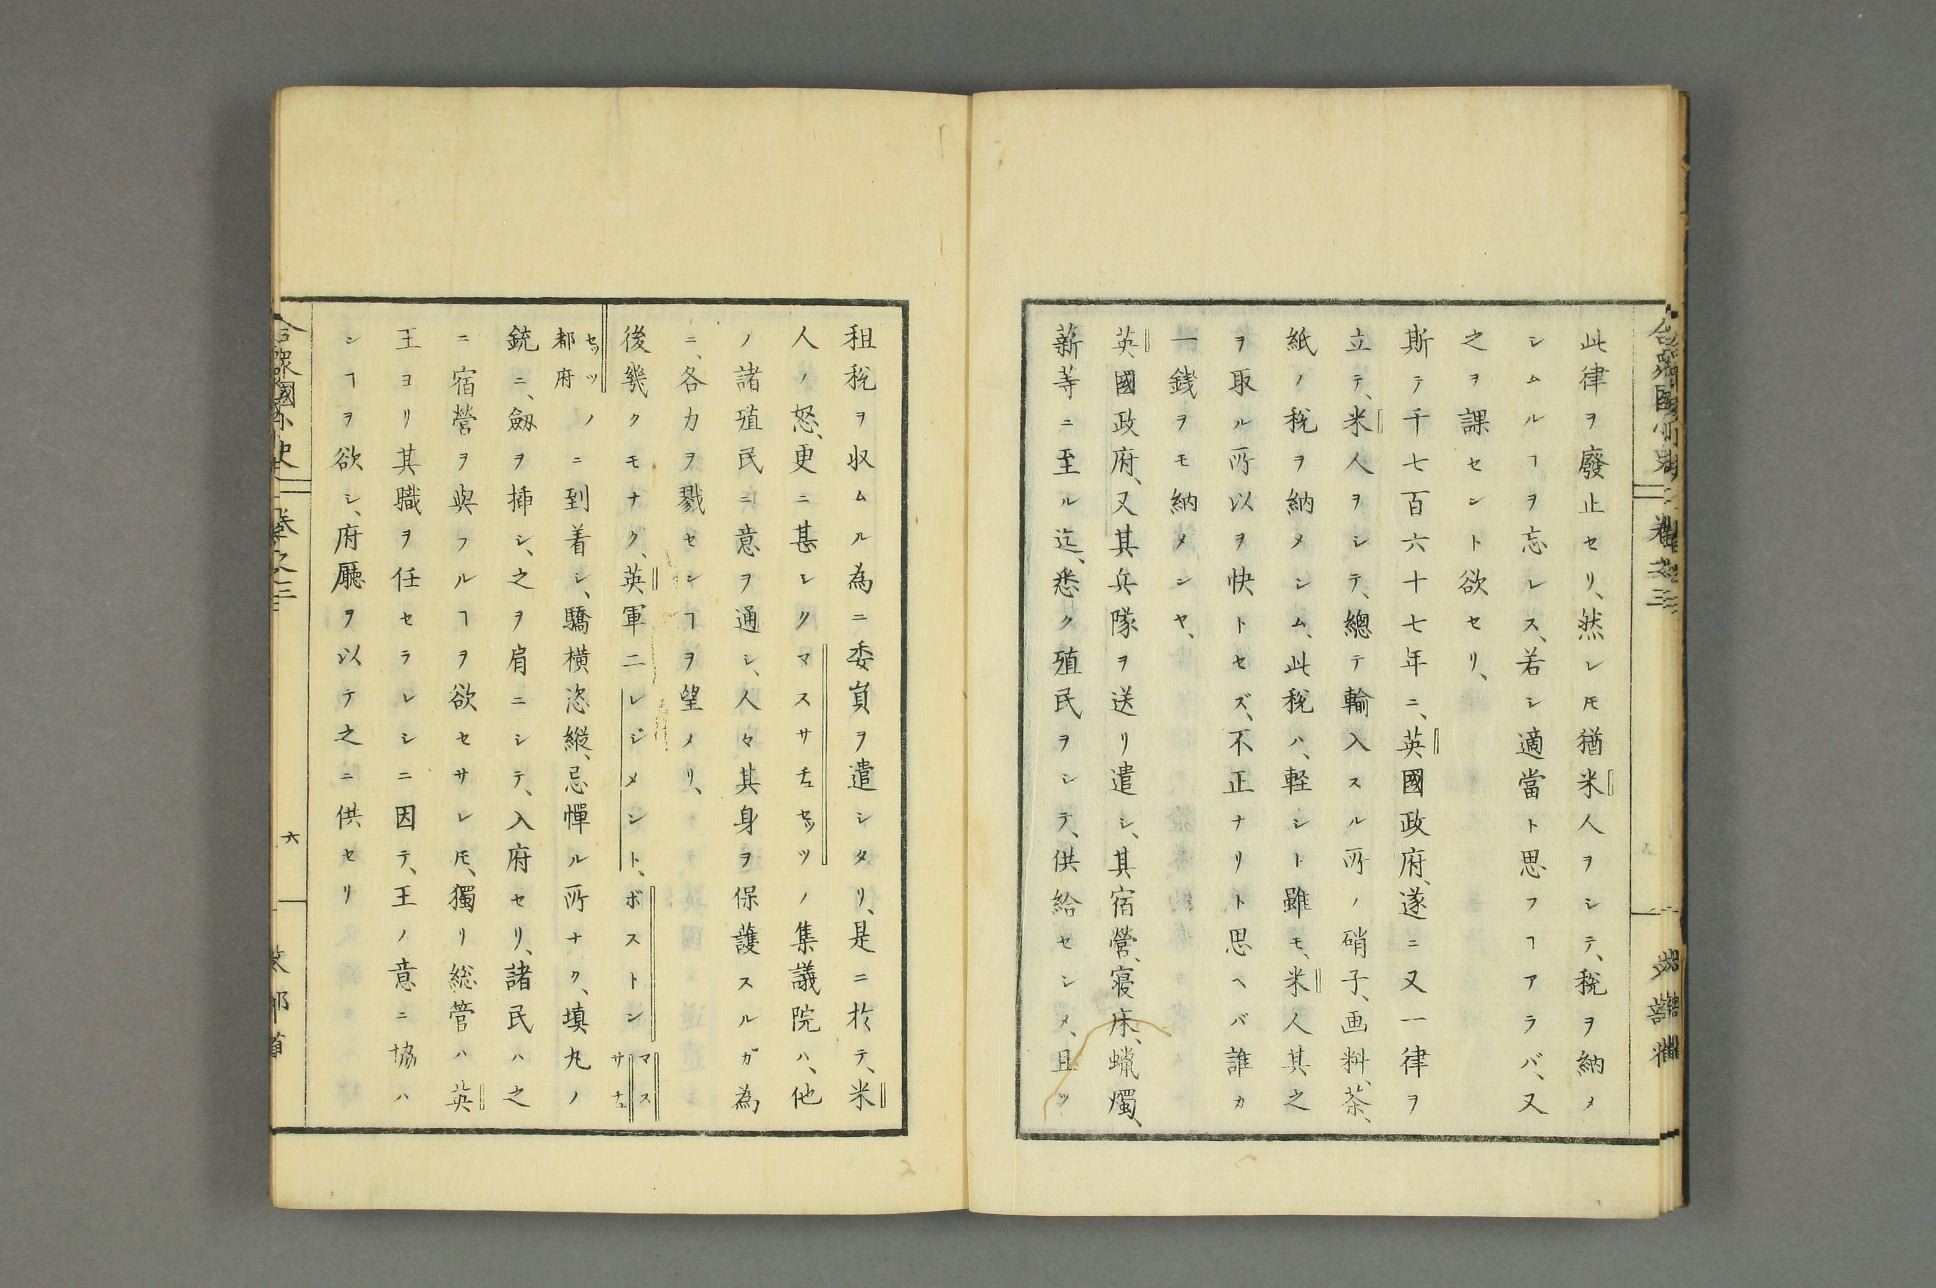 此律ヲ廢止セリ、然レ𪜈猶米人ヲシテ、税ヲ納メ
シムルヿヲ忘レス、若シ適當ト思フヿアラバ、又
之ヲ課セント欲セリ、
斯テ千七百六十七年ニ、英國政府、遂ニ又一律ヲ
立テ、米人ヲシテ、總テ輸入スル所ノ硝子、画料、茶、
紙ノ税ヲ納メシム、此税ハ、軽シト雖モ、米人其之
ヲ取ル所以ヲ快トセズ、不正ナリト思ヘバ誰カ
一銭ヲモ納メンヤ、
英國政府、又其兵隊ヲ送リ遣シ、其宿營、寝床、蠟燭、
薪等ニ至ル迄、悉ク殖民ヲシテ、供給セシメ、且ツ
租税ヲ収ムル為ニ委員ヲ遣シタリ、是ニ於テ、米
人ノ怒、更ニ甚シクマスサチュセッツノ集議院ハ、他
ノ諸殖民ニ意ヲ通シ、人々其身ヲ保護スルガ為
ニ、各力ヲ戮センヿヲ望メリ、
後幾クモナク、英軍二レジメント、ボストンマスサチュ
セッツ都府ノニ到着シ、驕横恣縦、忌憚ル所ナク、填丸ノ
銃ニ、劔ヲ挿シ、之ヲ肩ニシテ、入府セリ、諸民ハ之
ニ宿營ヲ與フルヿヲ欲セサレ𪜈、獨リ総管ハ英
王ヨリ其職ヲ任セラレシニ因テ、王ノ意ニ協ハ
シヿヲ欲シ、府廳ヲ以テ之ニ供セリ
合衆國小史 卷之三
六